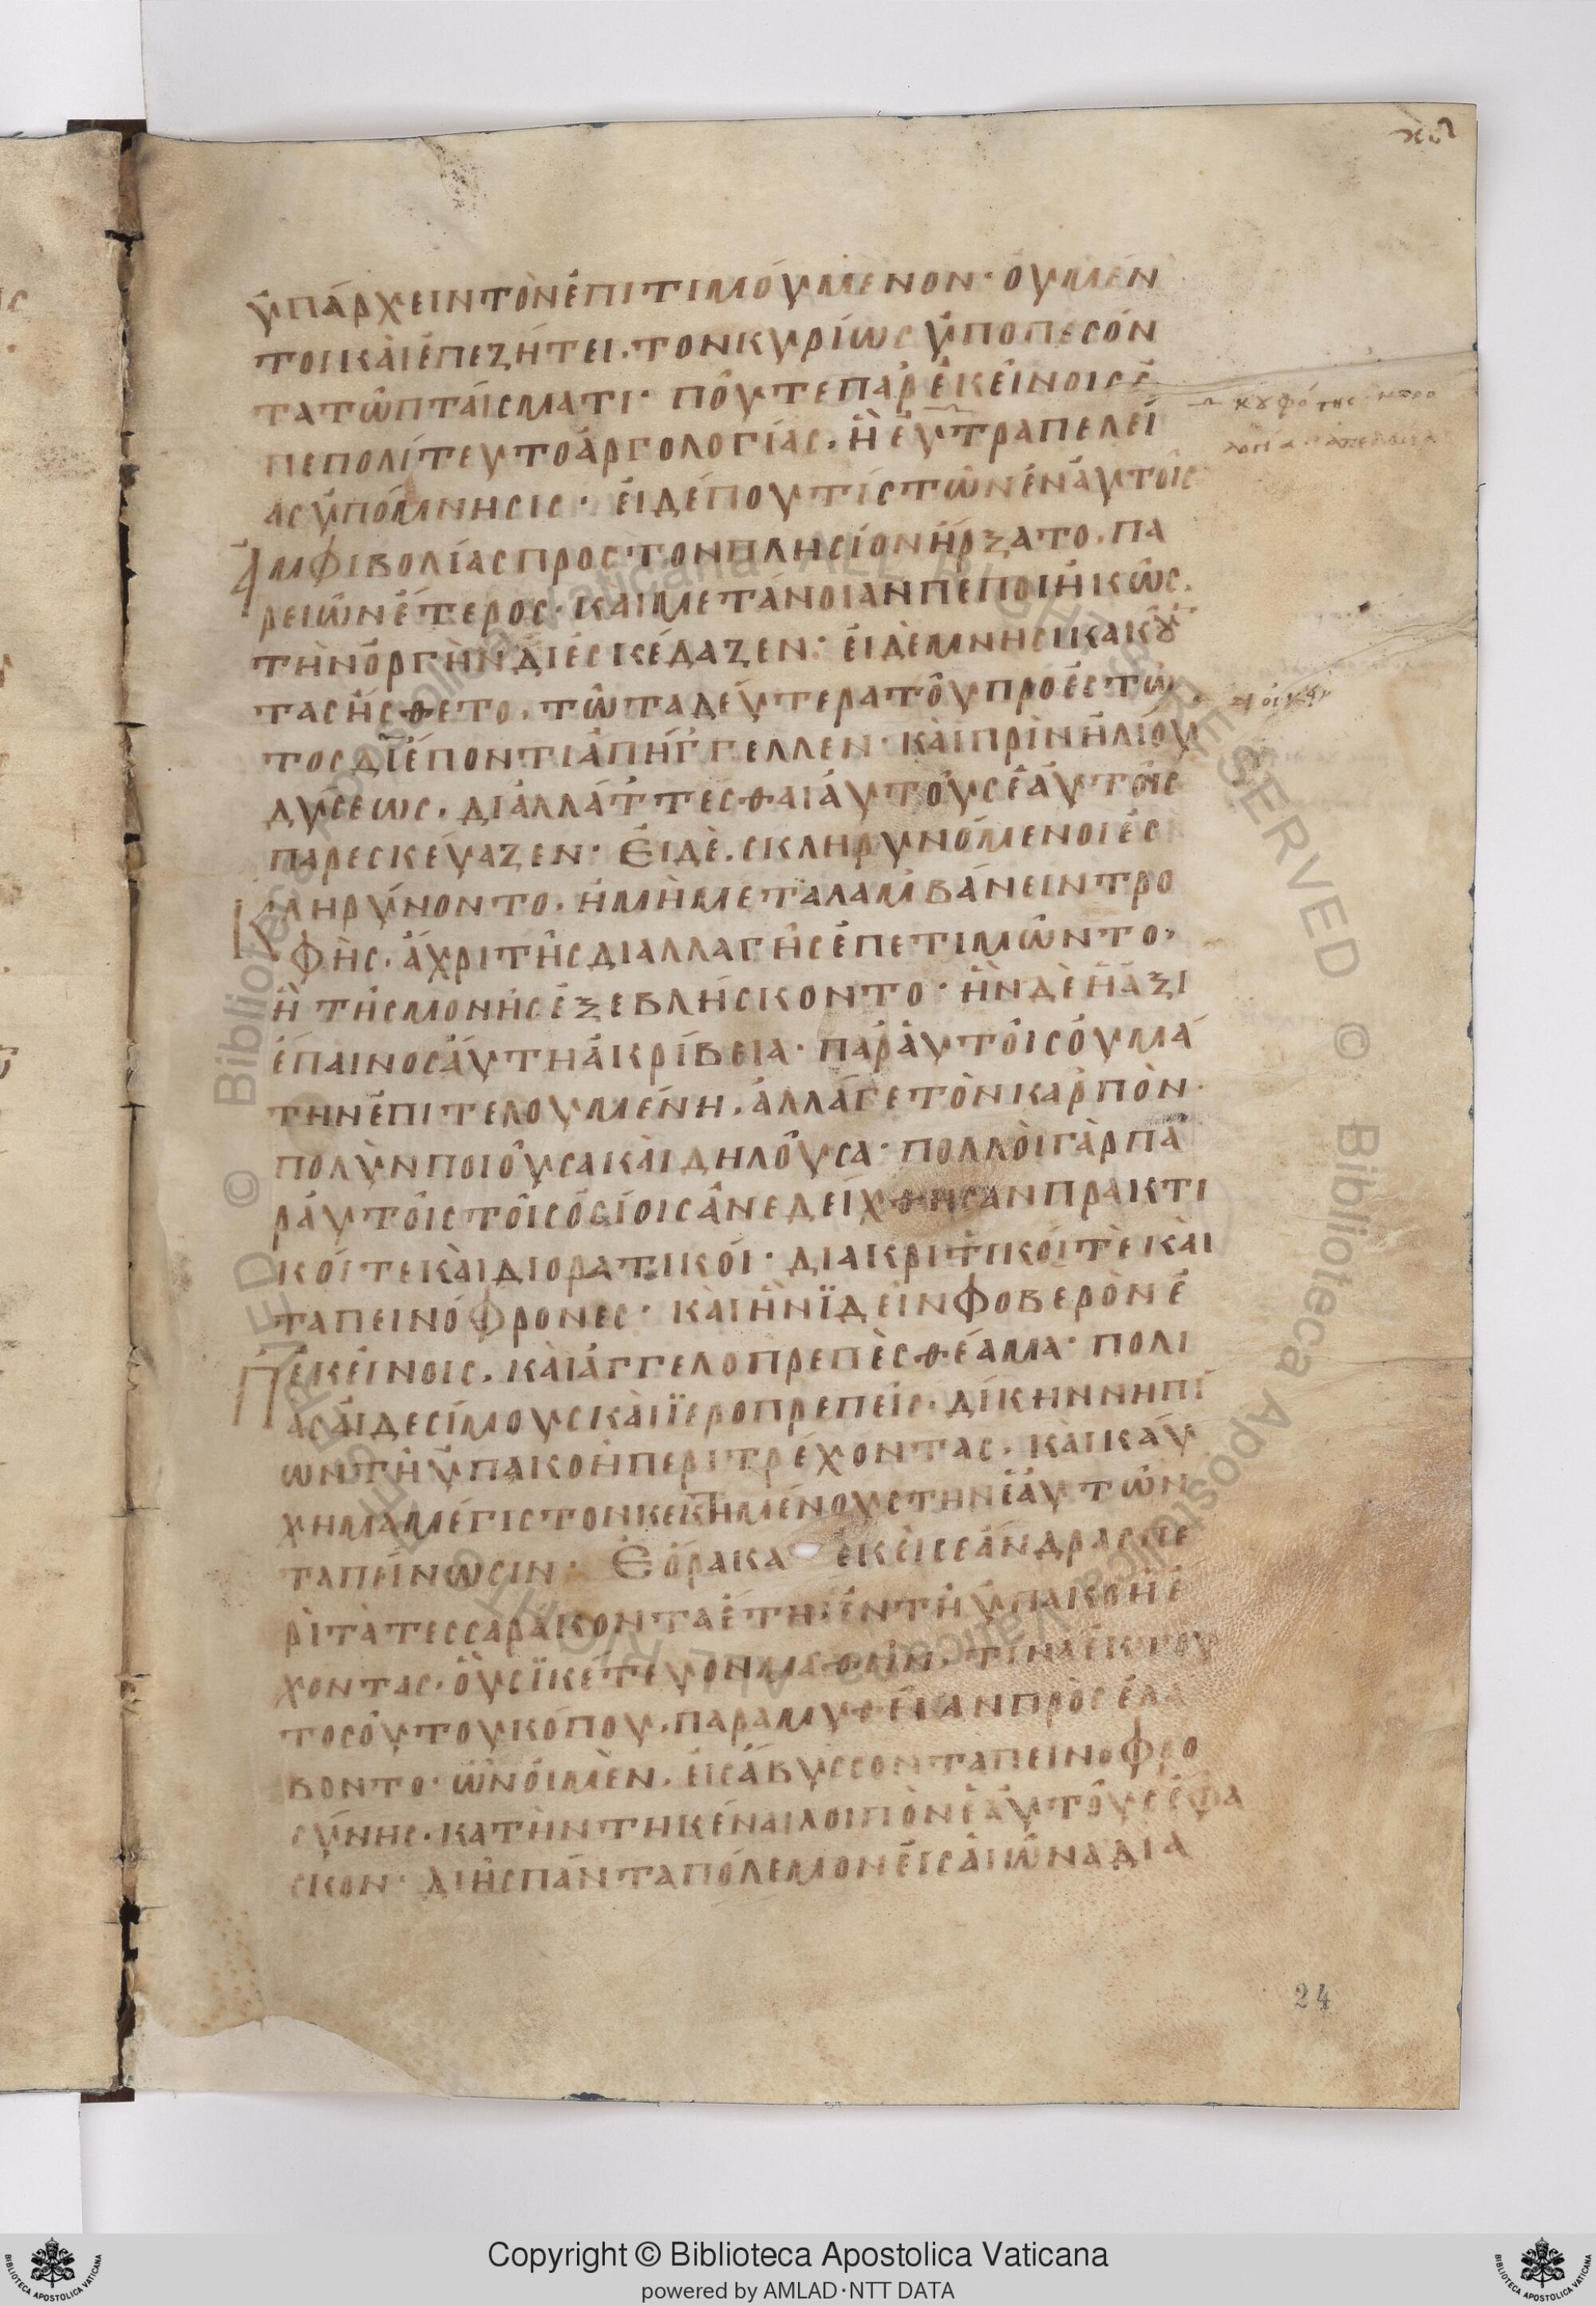 ὑπάρχειν τὸν ἐπιτιμούμενον· οὐ μέν
τοι καὶ ἐπεζήτει. τὸν κυρίως ὑποπεσόν
τα τῶ πταίσματι· ποῦ τε παρ' ἐκείνοις ἐ
πεπολίτευτο ἀργολογίας, ἢ εὐτραπελεί
ας ὑπόμνησις· εἰ δέ που τίς τῶν ἐν αὐτοῖς
ἀμφιβολίας πρὸς τὸν πλησίον ἤρξατο. πα
ρειὼν ἕτερος· καὶ μετάνοιαν πεποιηκὼς.
τὴν ὀργὴν διεσκέδαζεν· εἰ δὲ μνησικακοῦ
τας ἤσθετο, τῶ τὰ δεύτερα τοῦ προεστῶ
τος διέποντι ἀπήγγελλεν· καὶ πρὶν ἡλίου
δύσεως. διαλλάττεσθαι αὐτοὺς ἑαυτοῖς
παρεσκεύαζεν· Εἰ δὲ. σκληρυνόμενοι ἐσ
κληρύνοντο. ἢ μὴ μεταλαμβάνειν τρο
φῆς. ἄχρι τῆς διαλλαγῆς ἐπετιμῶντο,
ἢ τῆς μονῆς ἐξεβλήσκοντο· ἦν δὲ ἡ ἀξι
έπαινος αὕτη ἀκρίβεια· παρ' αὐτοῖς οὐ μά
την ἐπιτελουμένη. ἀλλά γε τὸν καρπὸν.
πολὺν ποιοῦσα καὶ δηλοῦσα· πολλοὶ γὰρ πα
ρ' αὐτοῖς τοῖς ὁσίοις ἀνεδείχθησαν πρακτι
κοί τε καὶ διορατικοί· διακριτικοί τε καὶ
ταπεινόφρονες· καὶ ἦν ϊδεῖν φοβερὸν ἐ
π' ἐκείνοις. καὶ ἀγγελοπρεπὲς θέαμα· πολι
ὰς αἰδεσίμους καὶ ϊεροπρεπεῖς. δίκην νηπί
ων τῇ ὑπακοῇ περιτρέχοντας. καὶ καύ
χημα μέγιστον κεκτημένους τὴν ἑαυτῶν
ταπείνωσιν· Ἑόρακα ἐκεῖσε ἄνδρας πε
ρὶ τὰ τεσσαράκοντα ἔτη ἐν τῇ ὑπακοῇ ἔ
χοντας. οὓς ϊκέτευον μαθεῖν. τίνα ἐκ τοῦ
τοσούτου κόπου. παραμυθείαν προσελά
βοντο· ὧν οἱ μὲν. εἰς ἄβυσσον ταπεινοφρο
σύνης. κατηντηκέναι λοιπὸν ἑαυτοὺς ἔφα
σκον· δι' ἧς πάντα πόλεμον εἰς αἰῶνα δια
24
Copyright © Biblioteca Apostolica Vaticana
powered by AMLAD·NTT DATA